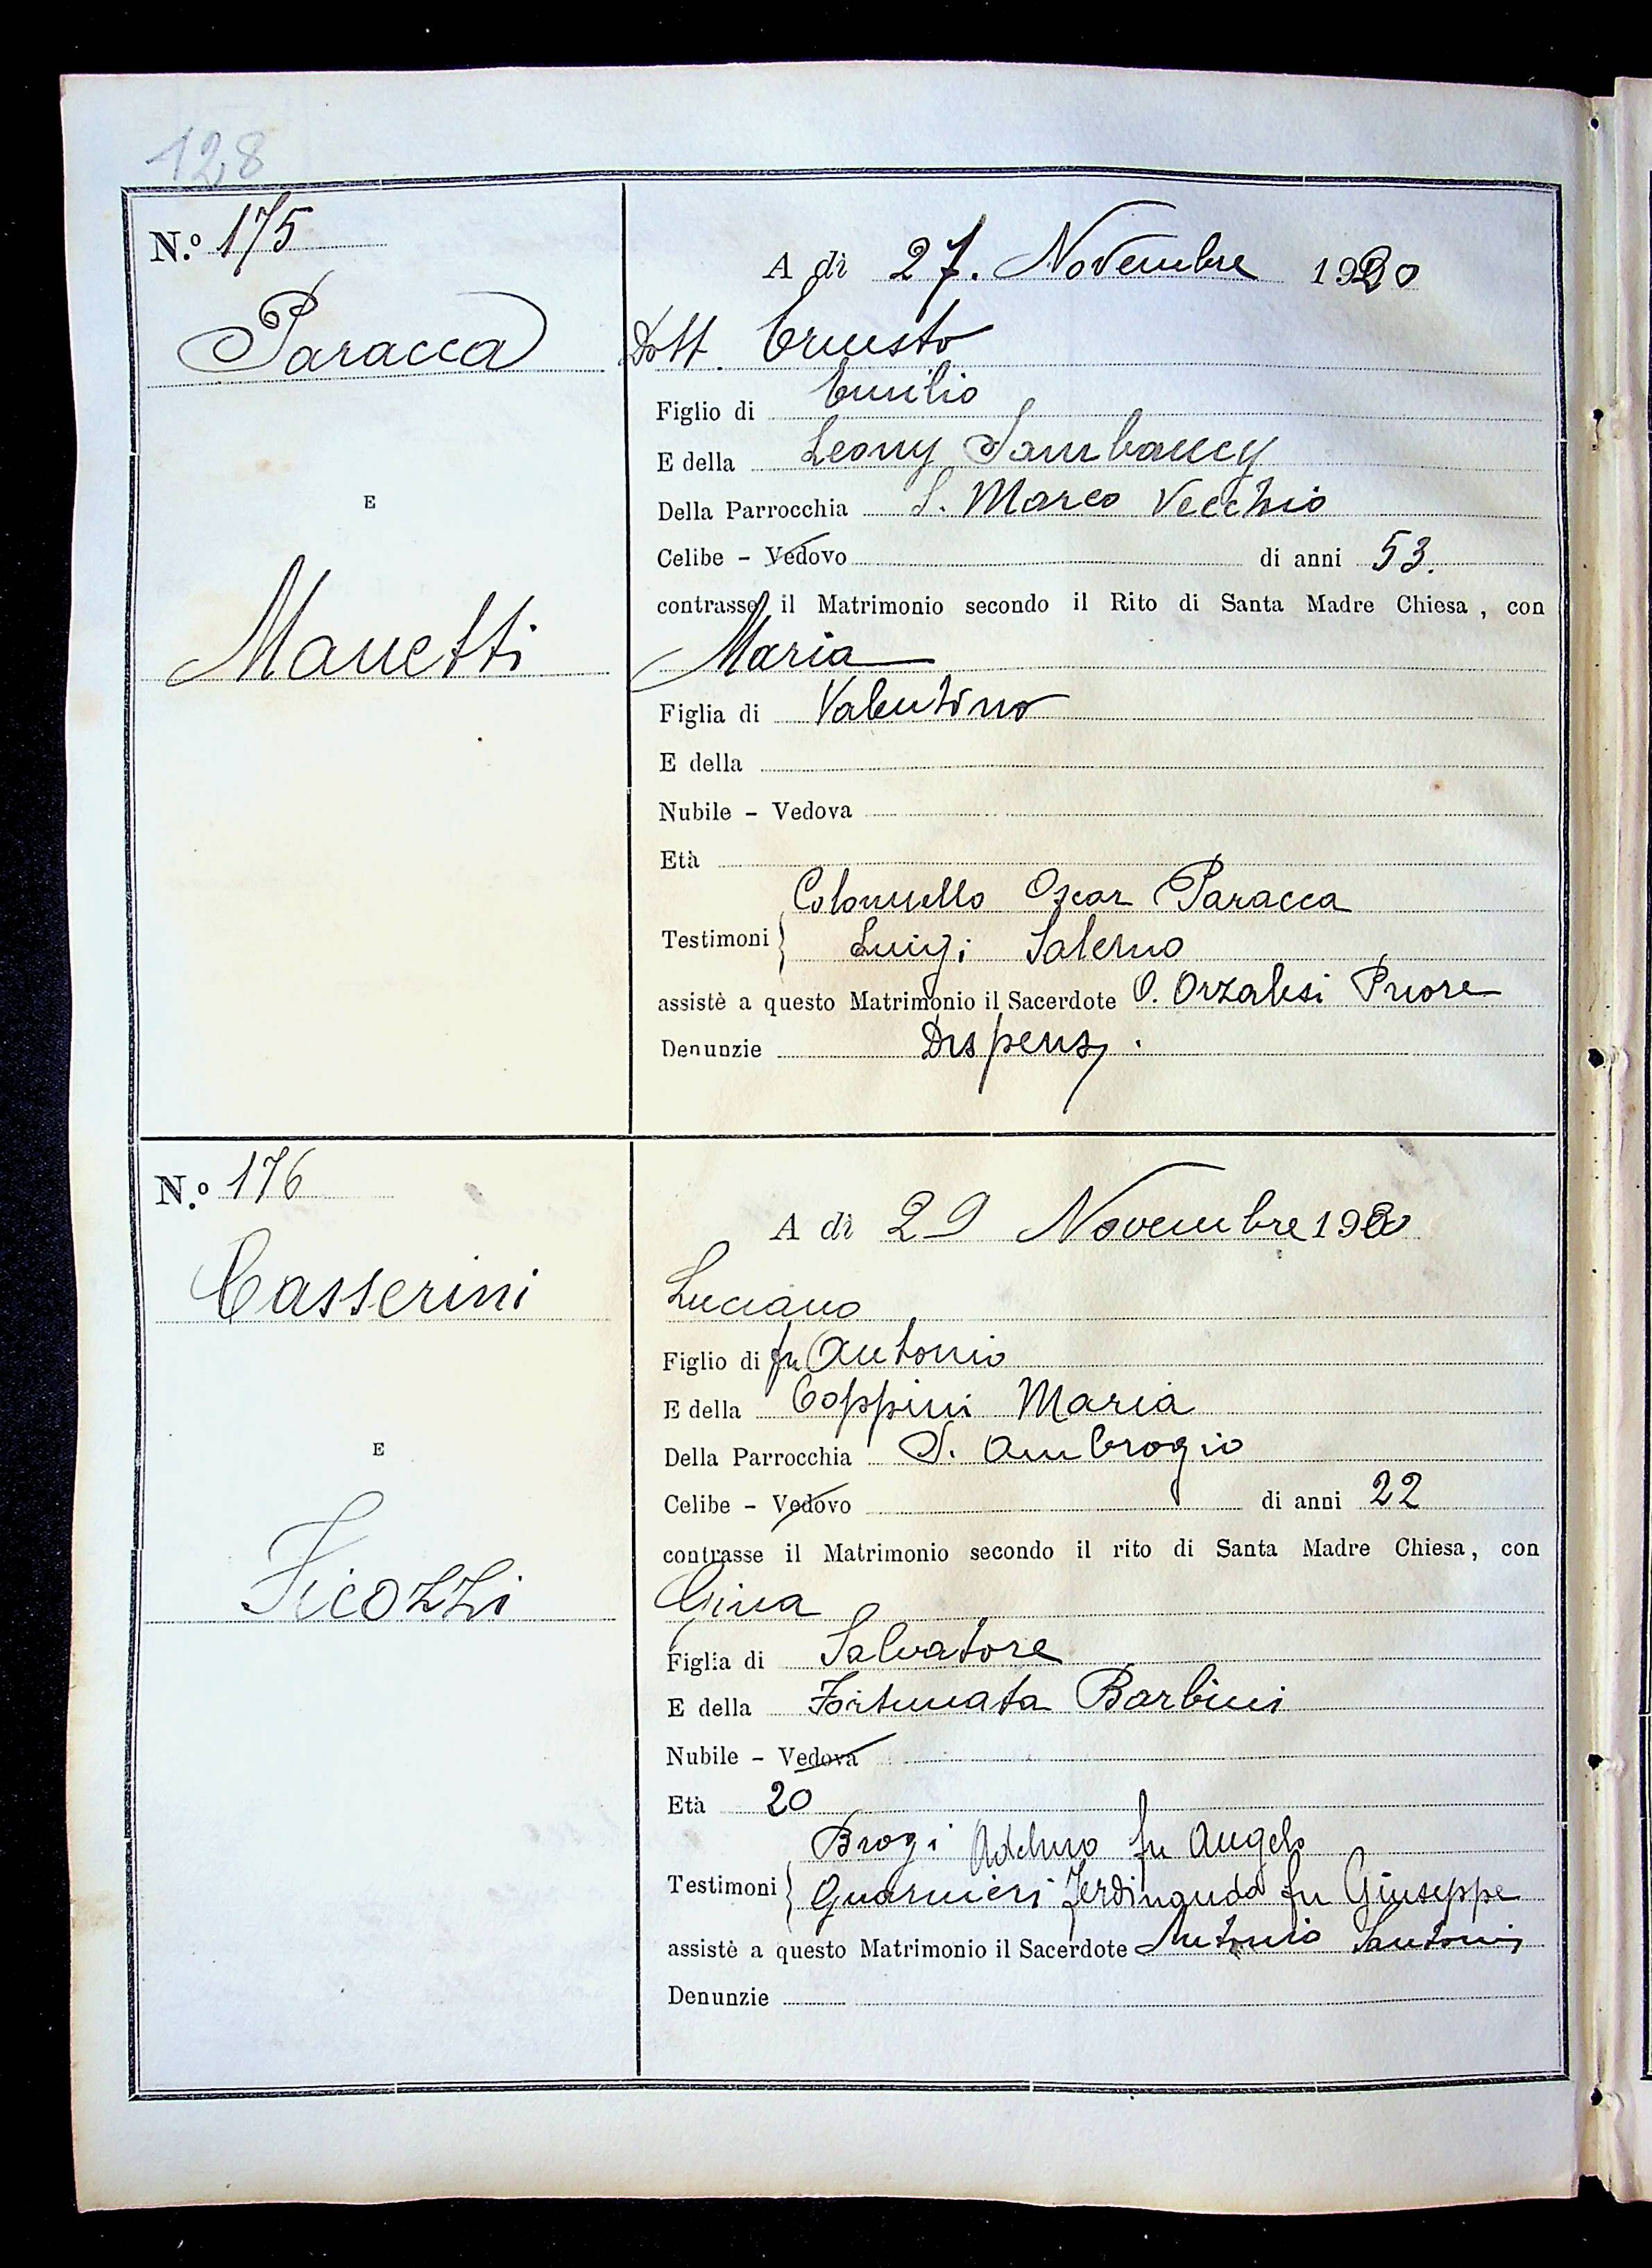 128
N.º 175
Paracca
E
Manetti
A dì 27. Novembre 1920
Dott. Ernesto
Figlio di Emilio
E della Leony Sambaucy
Della Parrocchia S. Marco Vecchio
Celibe - Vedovo di anni 53.
contrasse il Matrimonio secondo il Rito di Santa Madre Chiesa, con
Maria
Figlia di Valentino
E della
Nubile - Vedova
Età
Colonnello Oscar Paracca
Testimoni Luigi Salerno
assistè a questo Matrimonio il Sacerdote O. Orzalesi Priore
Denunzie Dispens.
N.º 176
Casserini
E
Ficozzi
A dì 29 Novembre 1920
Luciano
Figlio di fu Antonio
E della Coppini Maria
Della Parrocchia S. Ambrogio
Celibe - Vedovo di anni 22
contrasse il Matrimonio secondo il rito di Santa Madre Chiesa, con
Gina
Figlia di Salvatore
E della Fortunata Barbini
Nubile - Vedova
Età 20
Brogi fu Angelo
Testimoni Guarnieri Ferdinando fu Giuseppe
assistè a questo Matrimonio il Sacerdote Antonio Santoni
Denunzie